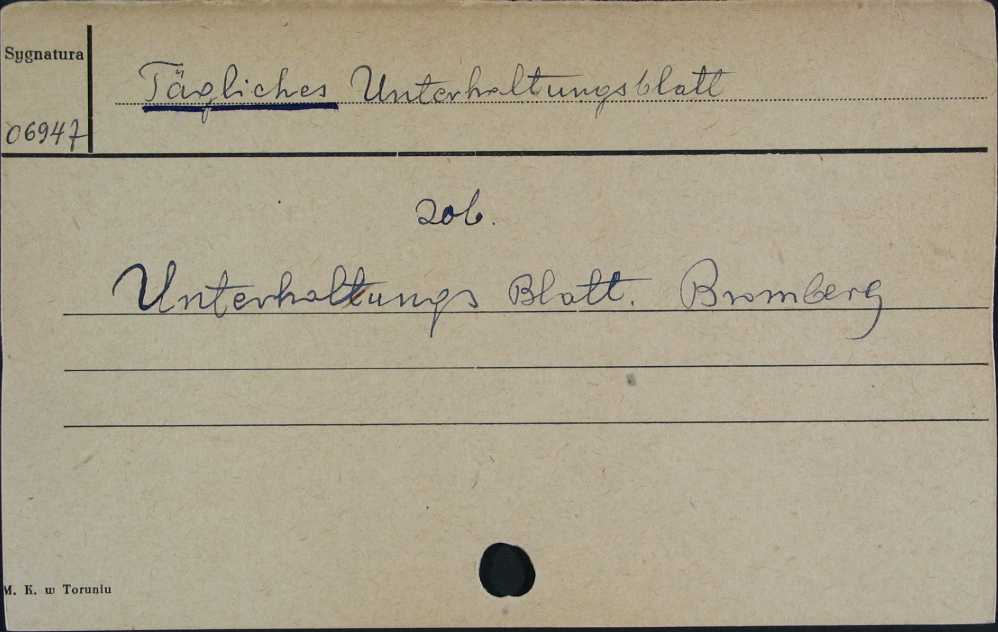 Sygnatura
Tägliches Unterhaltungsblatt
06947
zob.
Unterhaltungs Blatt. Bromberg
M. K. w Toruniu